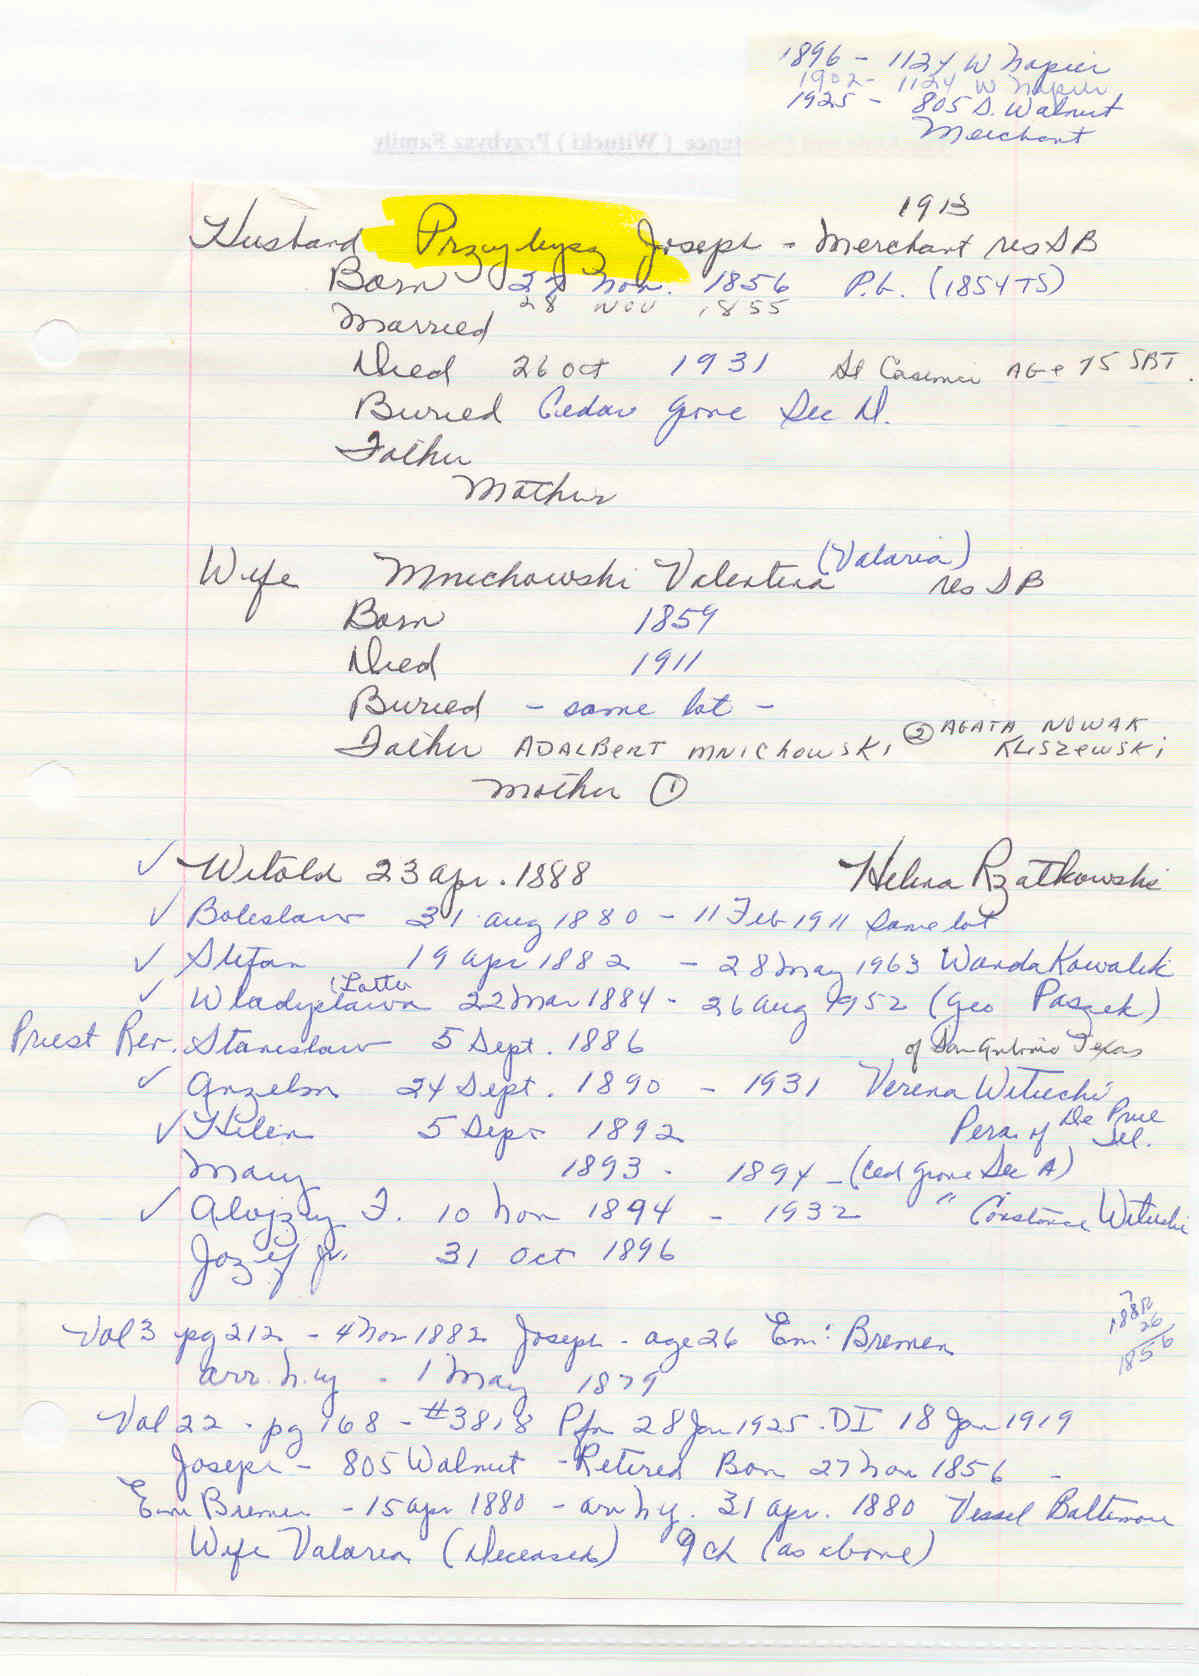 1896 - 1124 W Napier
1902 - 1124 W Napier
1925 - 805 S. Walnut
Merchant
( Witucki ) Przybysz Family
1913
Husband Przybysz Joseph - Merchant res SB
Born 27 Nov. 1856 P.G. (1854 TS)
28 NOV 1855
Married
Died 26 Oct 1931 St Casimir AGe 75 SBT.
Buried Cedar Grove Sec N.
Father
Mother
Wife Mnichowski Valentina (Valaria) res SB
Born 1859
Died 1911
Buried - same lot -
Father ADALBERT MNICHOWSKI ② AGATA NOWAK
KLISZEWSKI
Mother ①
✓ Witold 23 Apr. 1888 Helena Rzatkowski
✓ Boleslaw 31 Aug 1880 - 11 Feb 1911 Same lot
✓ Stefan 19 Apr 1882 - 28 May 1963 Wanda Kowalek
✓ Wladyslawa (Lottie 22 Mar 1884 - 26 Aug 1952 (Geo Paszek)
Priest Rev. Stanislaw 5 Sept. 1886 of San Antonio Texas
✓ Anzelm 24 Sept. 1890 - 1931 Verena Witucki
✓ Helen 5 Sept 1892 Pera of De Prue Ill.
Mary 1893 - 1894 - (Ced Grove Sec A)
✓ Alojzy F. 10 Nov 1894 - 1932 " Constance Witucki
Jozef Jr. 31 Oct 1896
Vol 3 pg 212 - 4 Nov 1882 Joseph - age 26 Em: Bremen
1882
26
1856
arr. N.Y. - 1 May 1879
Vol 22 - pg 168 - #3818 Pfn 28 Jan 1925 - DI 18 Jan 1919
Joseph - 805 Walnut - Retired Born 27 Nov 1856 -
Em Bremen - 15 Apr 1880 - arr N.Y. 31 Apr. 1880 Vessel Baltimore
Wife Valaria (Deceased) 9 Ch (as above)